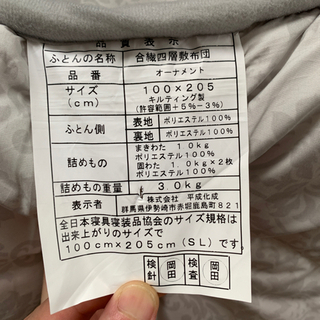 品質表示
ふとんの名称 合繊四層敷布団
品番 オーナメント
サイズ(cm) 100×205
キルティング製
(許容範囲+5%-3%)
ふとん側 表地 ポリエステル100%
裏地 ポリエステル100%
詰めもの まきわた 1.0kg
ポリエステル100%
固わた 1.0kg×2枚
ポリエステル100%
詰めもの重量 3.0kg
表示者 株式会社 平成化成
群馬県伊勢崎市赤堀鹿島町821
全日本寝具寝装品協会のサイズ規格は
出来上がりのサイズで
100cm×205cm(SL)です。
検針 岡田 検査 岡田